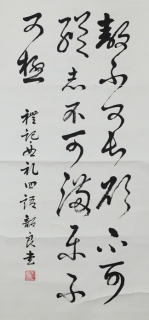 敖不可长欲不可
纵志不可满乐不
可极
礼记曲礼四语韶良书